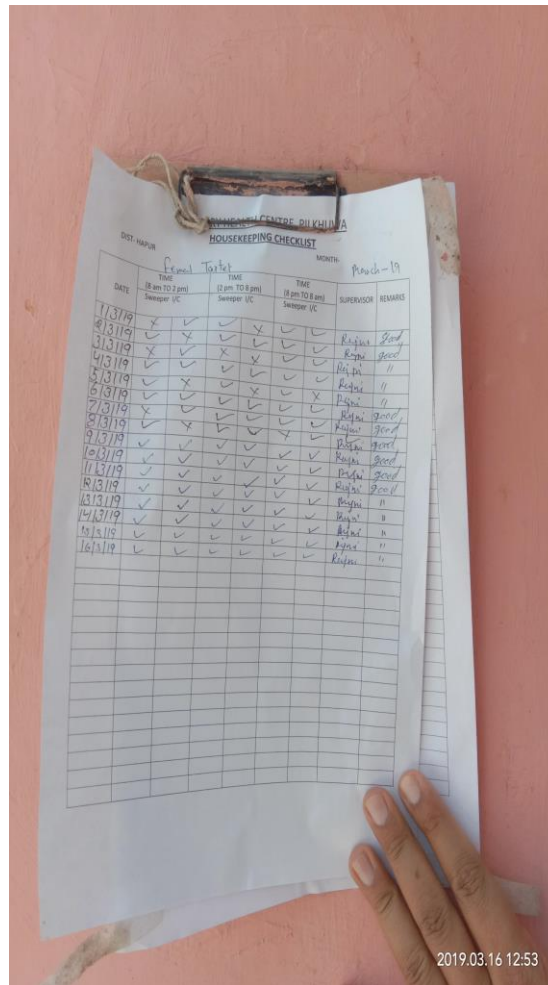 HEALTH CENTRE PILKHUWA
HOUSEKEEPING CHECKLIST
DIST- HAPUR
MONTH- March-19
DATE TIME (8 am TO 2 pm) TIME (2 pm TO 8 pm) TIME (8 pm TO 8 am) SUPERVISOR REMARKS
Sweeper I/C Sweeper I/C Sweeper I/C
1/3/19 × ✓ ✓ × ✓ ✓ Rajni good
2/3/19 ✓ × ✓ ✓ ✓ ✓ Rajni good
3/3/19 × ✓ × ✓ ✓ Rajni "
4/3/19 ✓ ✓ Rajni "
5/3/19 Rajni good
6/3/19 Rajni good
7/3/19 Rajni good
8/3/19 Rajni good
9/3/19 ✓ ✓ ✓ ✓ ✓ ✓ Rajni good
10/3/19 ✓ ✓ ✓ ✓ ✓ ✓ Rajni good
11/3/19 ✓ ✓ ✓ ✓ ✓ ✓ Rajni "
12/3/19 ✓ ✓ ✓ ✓ ✓ ✓ Rajni "
13/3/19 ✓ ✓ ✓ ✓ ✓ ✓ Rajni "
14/3/19 ✓ ✓ ✓ ✓ ✓ ✓ Rajni "
15/3/19 ✓ ✓ ✓ ✓ ✓ ✓ Rajni "
16/3/19 ✓ ✓ ✓ ✓ ✓ ✓ Rajni "
2019.03.16 12:53